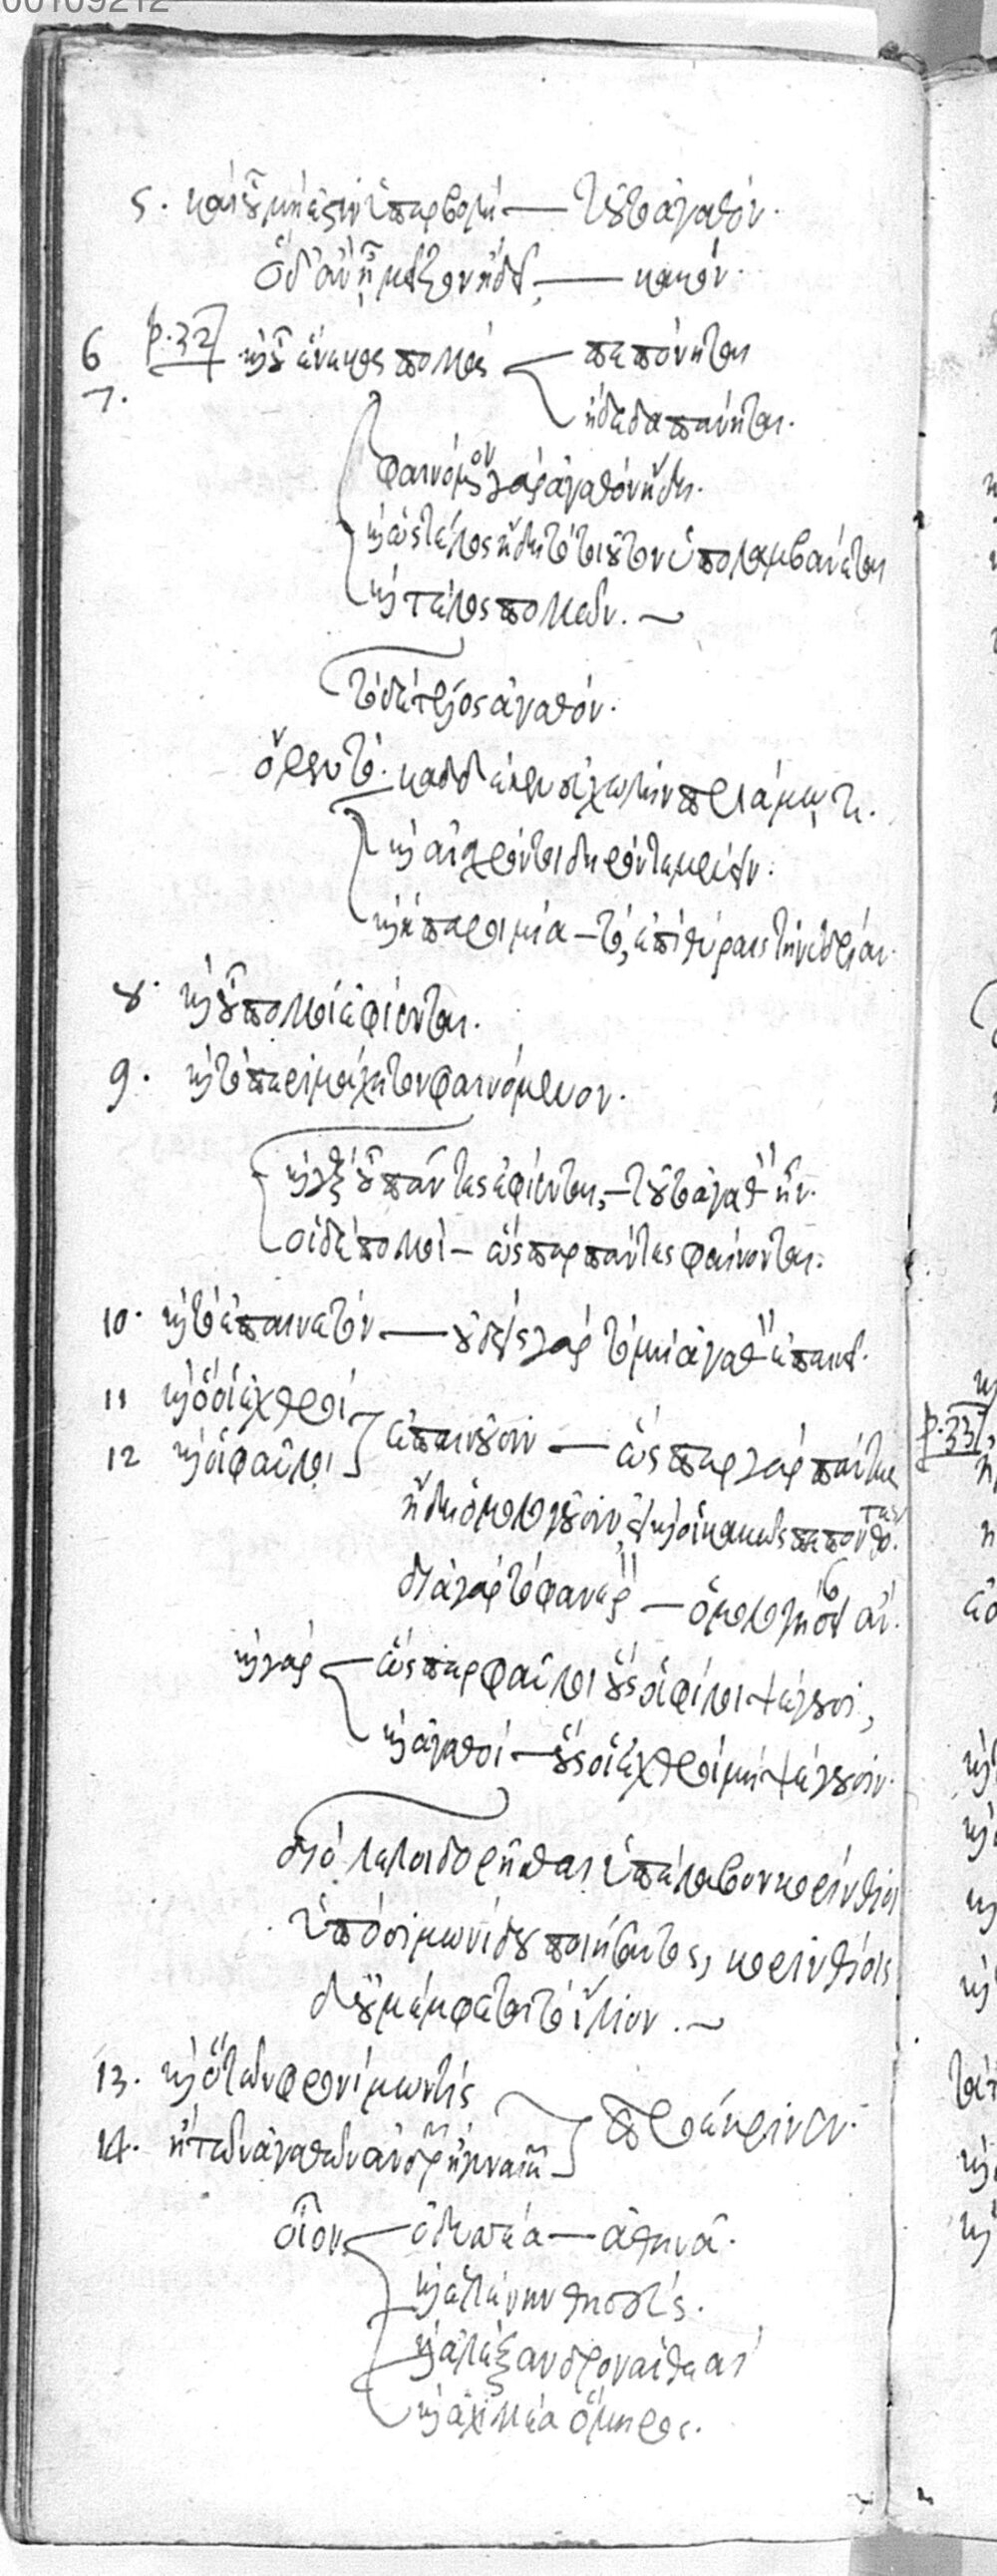 00109212
5. καὶ οὗ μή ἐστιν ὑπερβολή — τοῦτο ἀγαθόν.
ὃ δ' ἂν ᾖ μεῖζον ἢ δεῖ, — κακόν.
6 p. 32 καὶ οὗ ἕνεκα πολλὰ πεπόνηται
7. ἢ δεδαπάνηται.
φαινόμενον γὰρ ἀγαθὸν ἤδη.
καὶ ὡς τέλος ἤδη τὸ τοιοῦτον ὑπολαμβάνεται
καὶ τέλος πολλῶν. —
τὸ δὲ τέλος ἀγαθόν.
ὅθεν τό. καδδέ κεν εὐχωλὴν πριάμῳ τι.
καὶ αἰσχρόν τοι δηρόν τε μένειν.
καὶ ἡ παροιμία — τό, ἐπὶ θύραις τὴν ὑδρίαν.
8. καὶ οὗ πολλοὶ ἐφίενται.
9. καὶ τὸ περιμάχητον φαινόμενον.
καὶ γὰρ οὗ πάντες ἐφίενται, — τοῦτο ἀγαθὸν ἦν.
οἱ δὲ πολλοὶ — ὥσπερ πάντες φαίνονται.
10. καὶ τὸ ἐπαινετόν — οὐδεὶς γὰρ τὸ μὴ ἀγαθὸν ἐπαινεῖ.
11 καὶ ὃ οἱ ἐχθροί
12 καὶ οἱ φαῦλοι ἐπαινοῦσιν — ὥσπερ γὰρ πάντες
ἤδη ὁμολογοῦσιν, εἰ καὶ οἱ κακῶς πεπονθότες.
διὰ γὰρ τὸ φανερὸν — ὁμολογοῖεν ἄν.
καὶ γὰρ ὥσπερ φαῦλοι οὓς οἱ φίλοι ψέγουσι,
καὶ ἀγαθοὶ — οὓς οἱ ἐχθροὶ μὴ ψέγουσιν.
διὸ λελοιδορῆσθαι ὑπέλαβον κορίνθιοι
ὑπὸ σιμωνίδου ποιήσαντος, κορινθίοις
δ' οὐ μέμφεται τὸ ἴλιον. —
13. καὶ ὃ τῶν φρονίμων τίς
14. ἢ τῶν ἀγαθῶν ἀνδρῶν ἢ γυναικῶν προέκρινεν.
οἷον ὀδυσσέα — ἀθηνᾶ.
καὶ ἑλένην θησεύς.
καὶ ἀλέξανδρον αἱ θεαί
καὶ ἀχιλλέα ὅμηρος.
p. 33